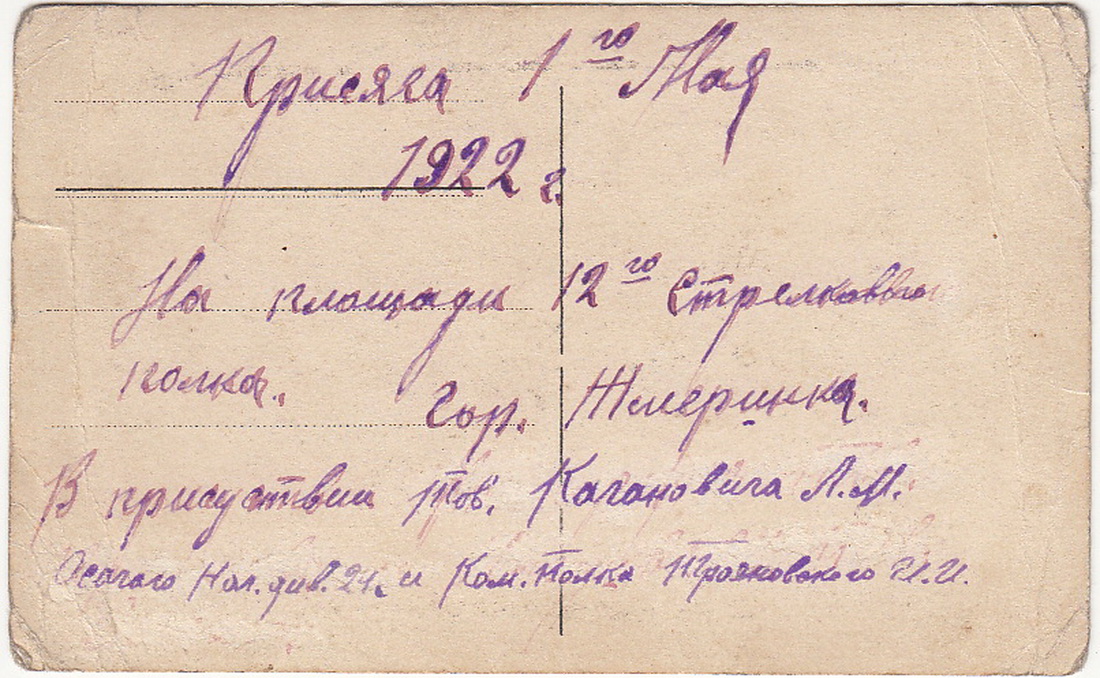 Присяга 1го Мая
1922 г.
На площади 12го Стрелковаго
полка. Гор. Жмеринка.
В присуствии тов. Кагановича Л.М.
Нач. див. 24. и Ком. Полка Трояновского И.И.